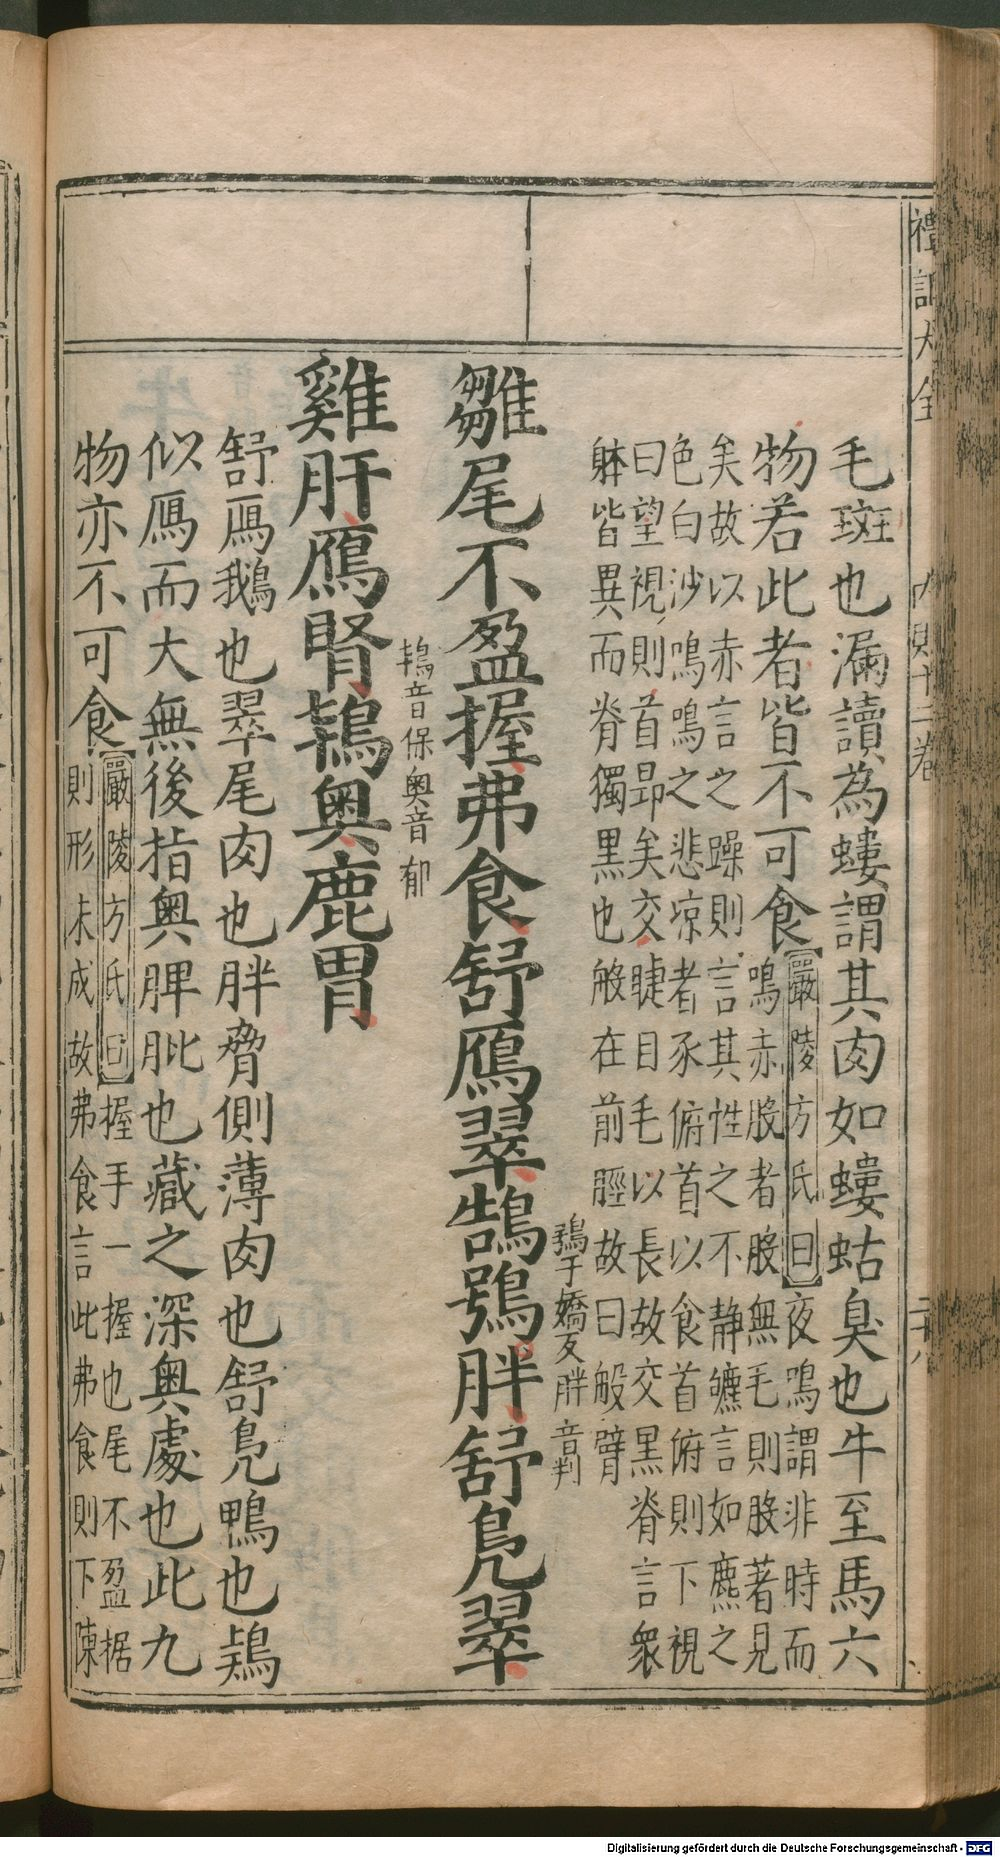 禮記大全 內則十二卷
毛斑也漏讀為螻謂其肉如螻蛄臭也牛至馬六
物若此者皆不可食
嚴陵方氏曰夜鳴謂非時而
鳴赤股者股無毛則股著見
矣故以赤言之躁則言其性之不静皫言如麃之
色白沙鳴鳴之悲凉者豕俯首以食首俯則下視
曰望視則首昻矣交睫目毛以長故交黑脊言衆
躰皆異而脊獨黑也般在前脛故曰般臂
鴞于嬌反胖音判
雛尾不盈握弗食舒鴈翠鵠鴞胖舒鳬翠
鴇音保奧音郁
雞肝鴈腎鴇奧鹿胃
舒鴈鵝也翠尾肉也胖脅側薄肉也舒鳬鴨也鴇
似鴈而大無後指奧脾肶也藏之深奧處也此九
物亦不可食
嚴陵方氏曰握手一握也尾不盈据
則形未成故弗食言此弗食則下陳
Digitalisierung gefördert durch die Deutsche Forschungsgemeinschaft - DFG